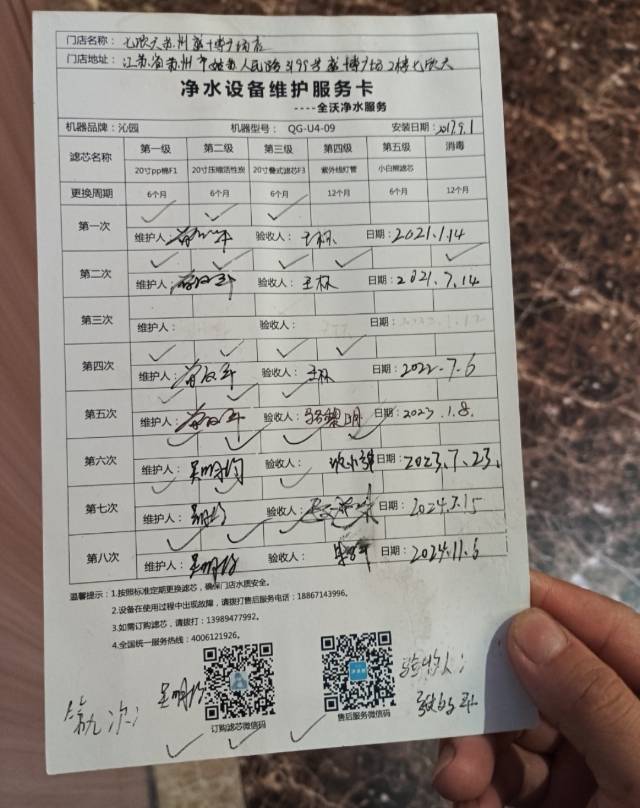 门店名称: 七欣天苏州盛博广场店
门店地址: 江苏省苏州市姑苏人民路3195号盛博广场2楼七欣天
净水设备维护服务卡
----全沃净水服务
机器品牌: 沁园 机器型号: QG-U4-09 安装日期: 2017.9.1
滤芯名称 第一级 第二级 第三级 第四级 第五级 消毒
20寸pp棉F1 20寸压缩活性炭 20寸叠式滤芯F3 紫外线灯管 小白鲸滤芯
更换周期 6个月 6个月 6个月 12个月 6个月 12个月
第一次 ✓ ✓ ✓
维护人: 验收人: 王林 日期: 2021.1.14
第二次 ✓ ✓ ✓ ✓ ✓
维护人: 验收人: 王林 日期: 2021.7.14
第三次
维护人: 验收人: 日期:
第四次 ✓ ✓ ✓ ✓
维护人: 验收人: 王林 日期: 2022.7.6
第五次 ✓ ✓ ✓
维护人: 验收人: 日期: 2023.1.8.
第六次 ✓ ✓ ✓ ✓
维护人: 验收人: 日期: 2023.7.23.
第七次 ✓ ✓ ✓
维护人: 验收人: 日期: 2024.3.15
第八次 ✓ ✓ ✓
维护人: 验收人: 日期: 2024.11.6
温馨提示: 1.按照标准定期更换滤芯，确保门店水质安全。
2.设备在使用过程中出现故障，请拨打售后服务电话: 18867143996。
3.如需订购滤芯，请拨打: 13989477992。
4.全国统一服务热线: 4006121926。
第九次: 验收人:
订购滤芯微信码 售后服务微信码
✓ ✓ ✓